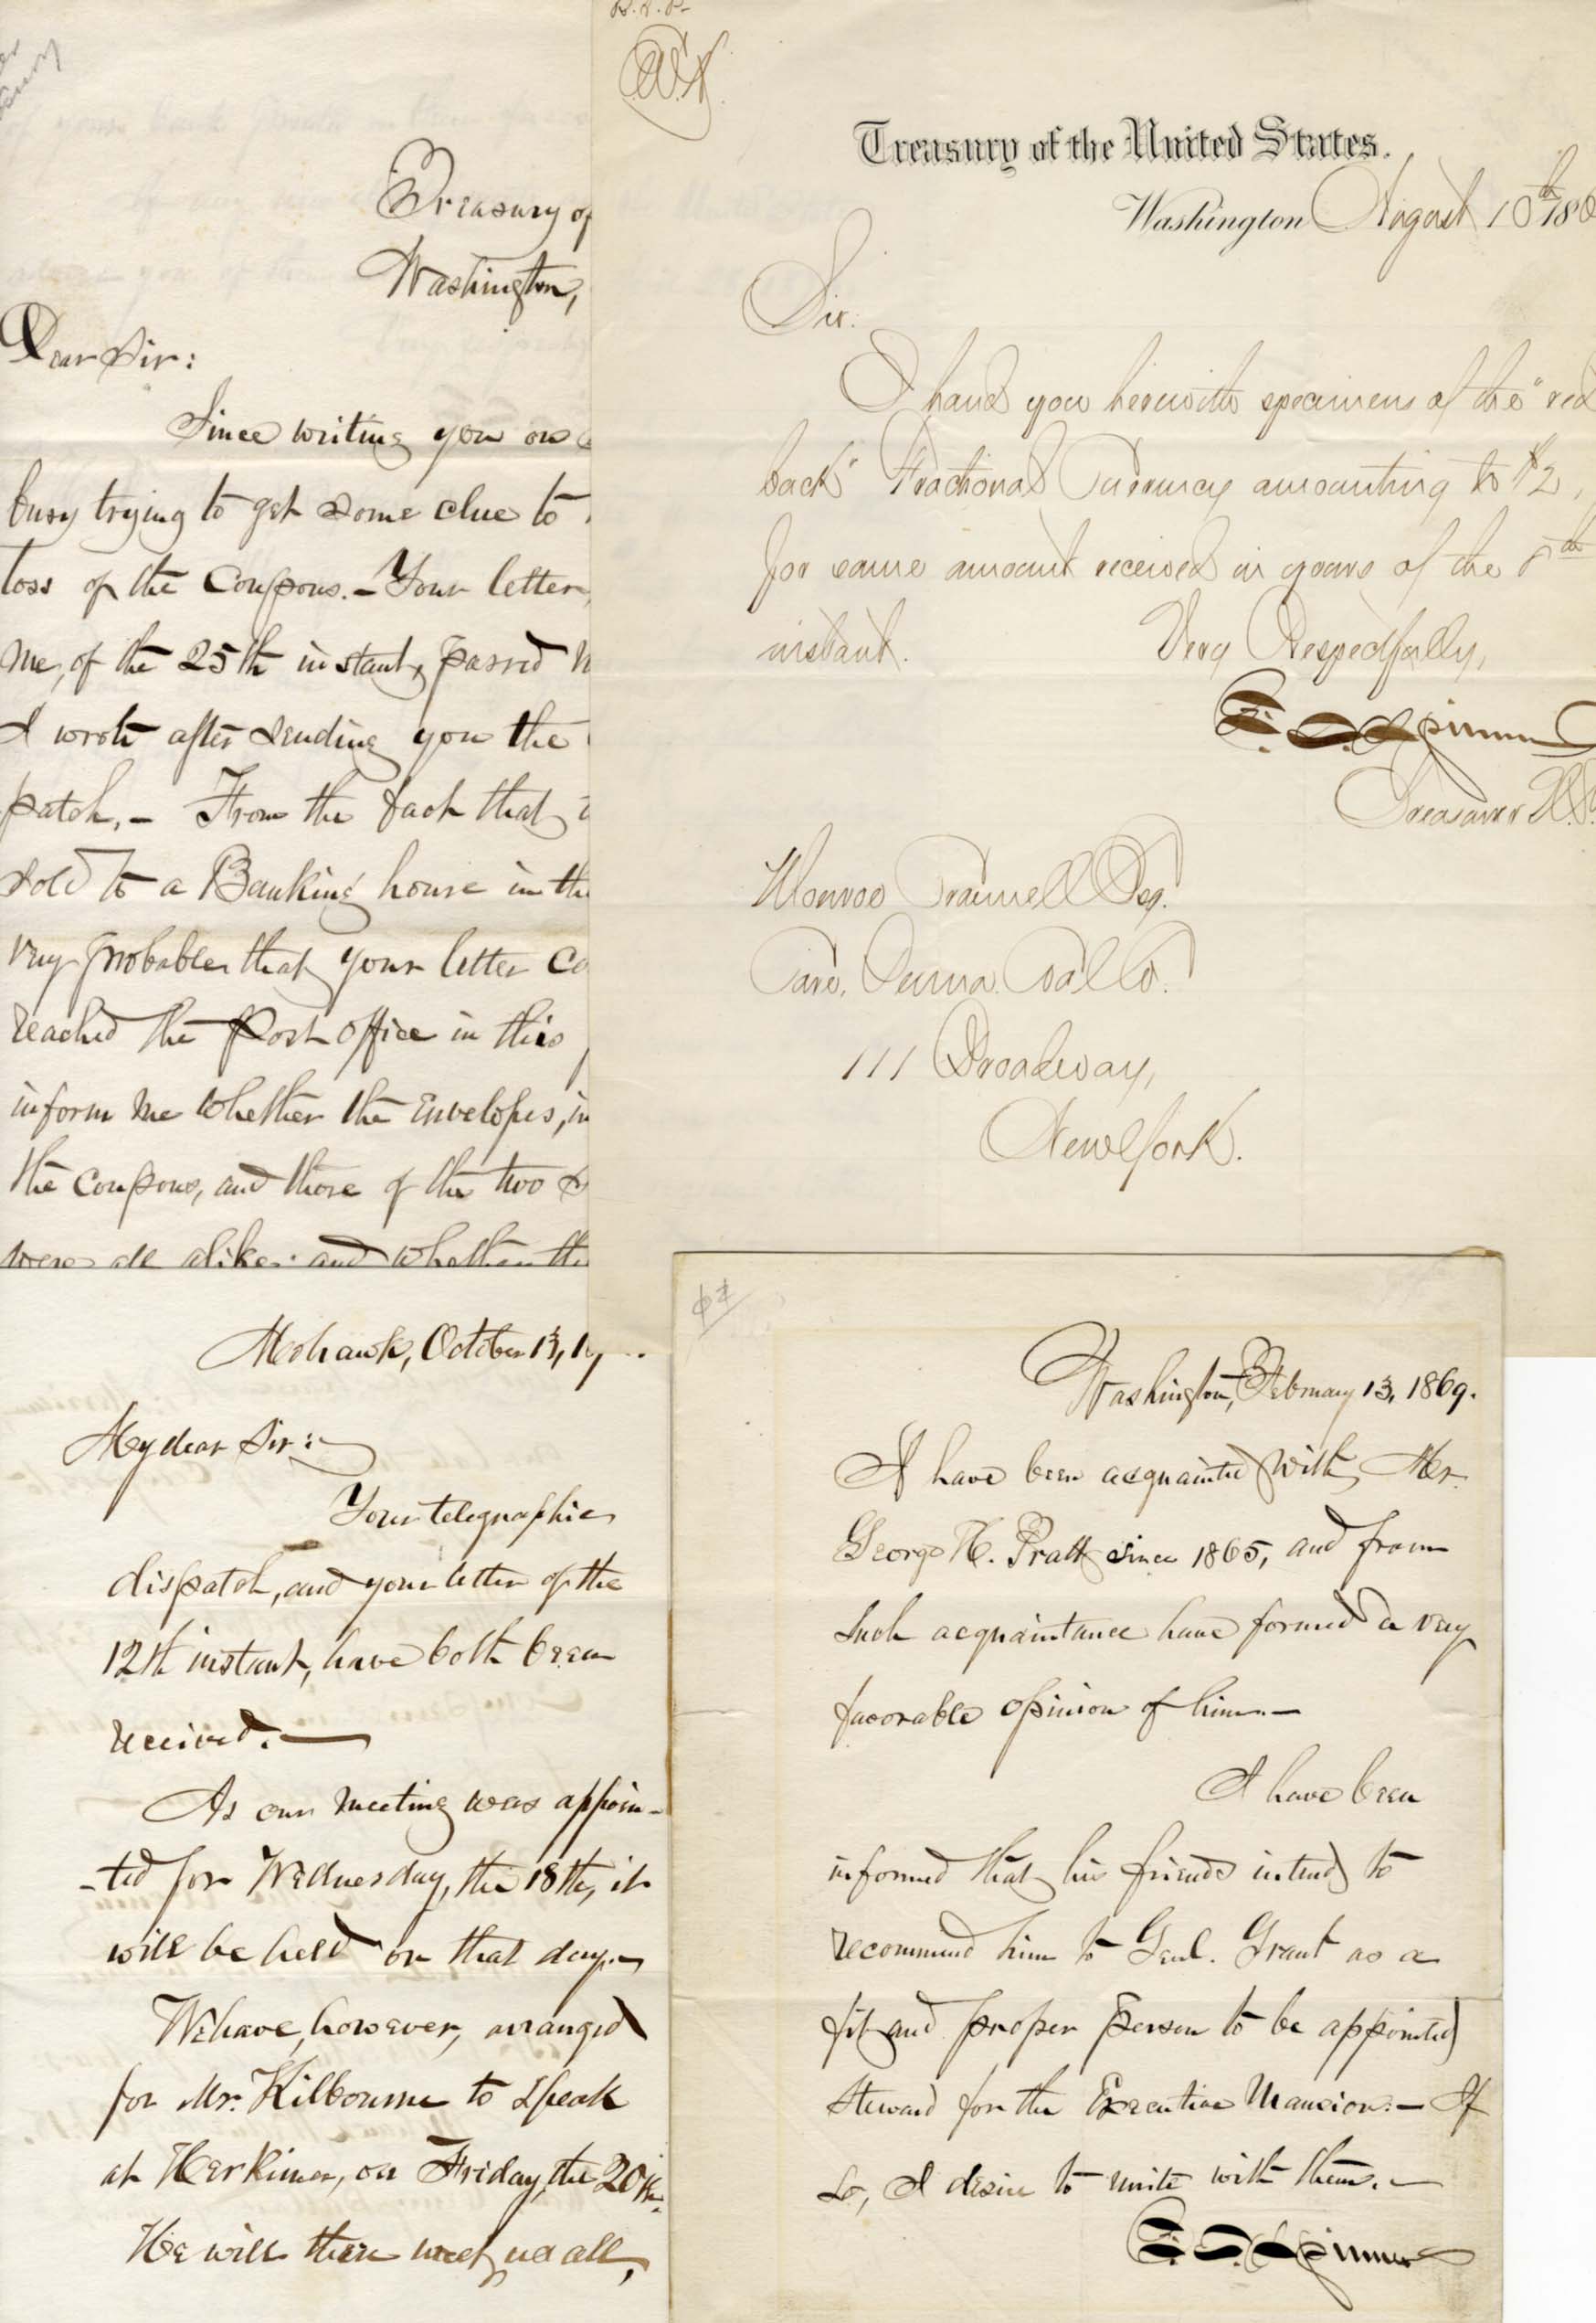 Treasury of
Washington,
Dear Sir:
Since writing you on
busy trying to get some clue to
loss of the Coupons. - Your letter,
me, of the 25th instant, passed
I wrote after sending you the
patch, - From the fact that
sold to a Banking house in the
very probable that your letter co
reached the Post Office in this
inform me whether the envelopes, in
the coupons, and those of the two
were all alike: and whether the
Treasury of the United States.
Washington August 10th 186
Sir:
I hand you herewith specimens of the "red
back" Fractional Currency amounting to $2,
for same amount received in yours of the 5th
instant. Very Respectfully,
F. E. Spinner
Treasurer U.S.
Monroe
Care.
111 Broadway,
New York.
Mohawk, October 13, 1
My dear Sir:
Your telegraphic
dispatch, and your letter of the
12th instant, have both been
received. -
As our meeting was appoin-
-ted for Wednesday, the 18th, it
will be held on that day. -
We have, however, arranged
for Mr. Kilbourne to speak
at Herkimer, on Friday, the 20th.
He will there meet us all,
Washington, February 13, 1869.
I have been acquainted with Mr.
George H. Pratt since 1865, and from
such acquaintance have formed a very
favorable opinion of him. -
I have been
informed that his friends intend to
recommend him to Genl. Grant as a
fit and proper person to be appointed
Steward for the Executive Mansion. - If
so, I desire to unite with them. -
F. E. Spinner